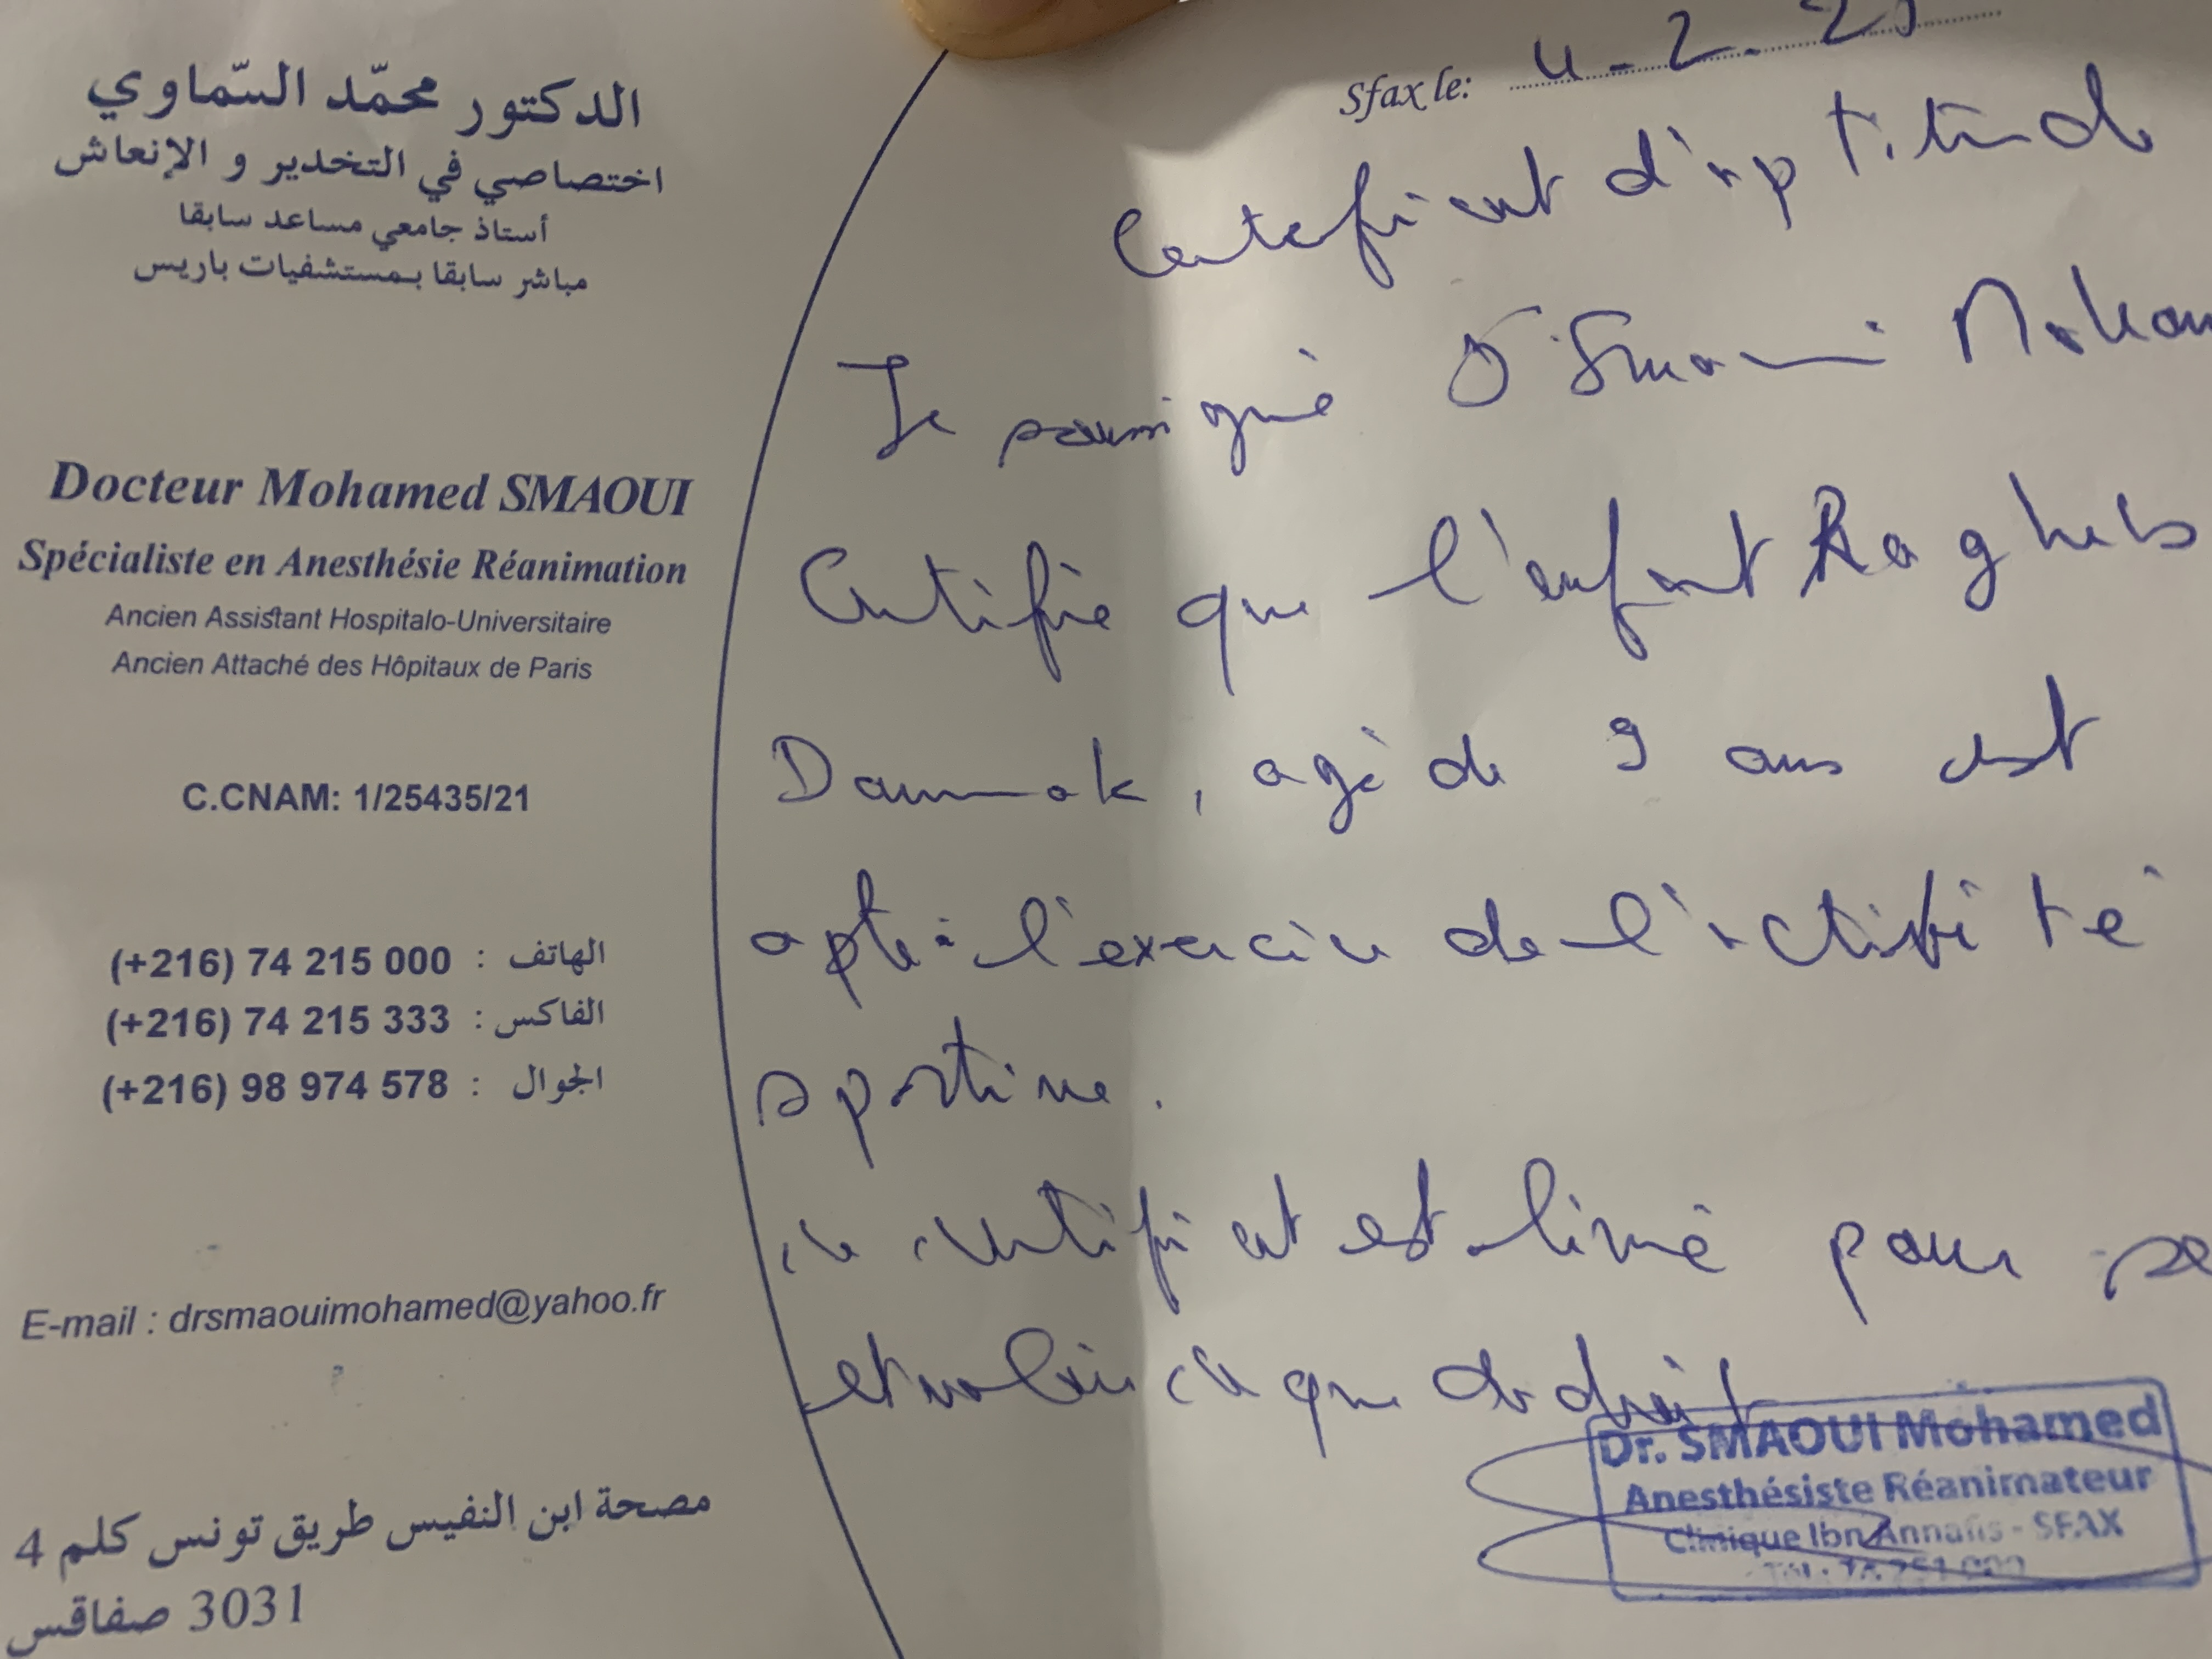 الدكتور محمّد السّماوي
اختصاصي في التخدير و الإنعاش
أستاذ جامعي مساعد سابقا
مباشر سابقا بمستشفيات باريس
Docteur Mohamed SMAOUI
Spécialiste en Anesthésie Réanimation
Ancien Assistant Hospitalo-Universitaire
Ancien Attaché des Hôpitaux de Paris
C.CNAM: 1/25435/21
الهاتف : (+216) 74 215 000
الفاكس : (+216) 74 215 333
الجوال : (+216) 98 974 578
E-mail : drsmaouimohamed@yahoo.fr
مصحة ابن النفيس طريق تونس كلم 4
3031 صفاقس
Sfax le: 4-2-25
Certificat d'aptitude
Je soussigné Dr Smaoui Moham
Certifie que l'enfant Ragheb
Dammak, agé de 9 ans est
apte à l'exercice de l'activité
sportive.
ce certificat est livré pour se
et valoir ce que de droit
Dr. SMAOUI Mohamed
Anesthésiste Réanimateur
Clinique Ibn Annafis - SFAX